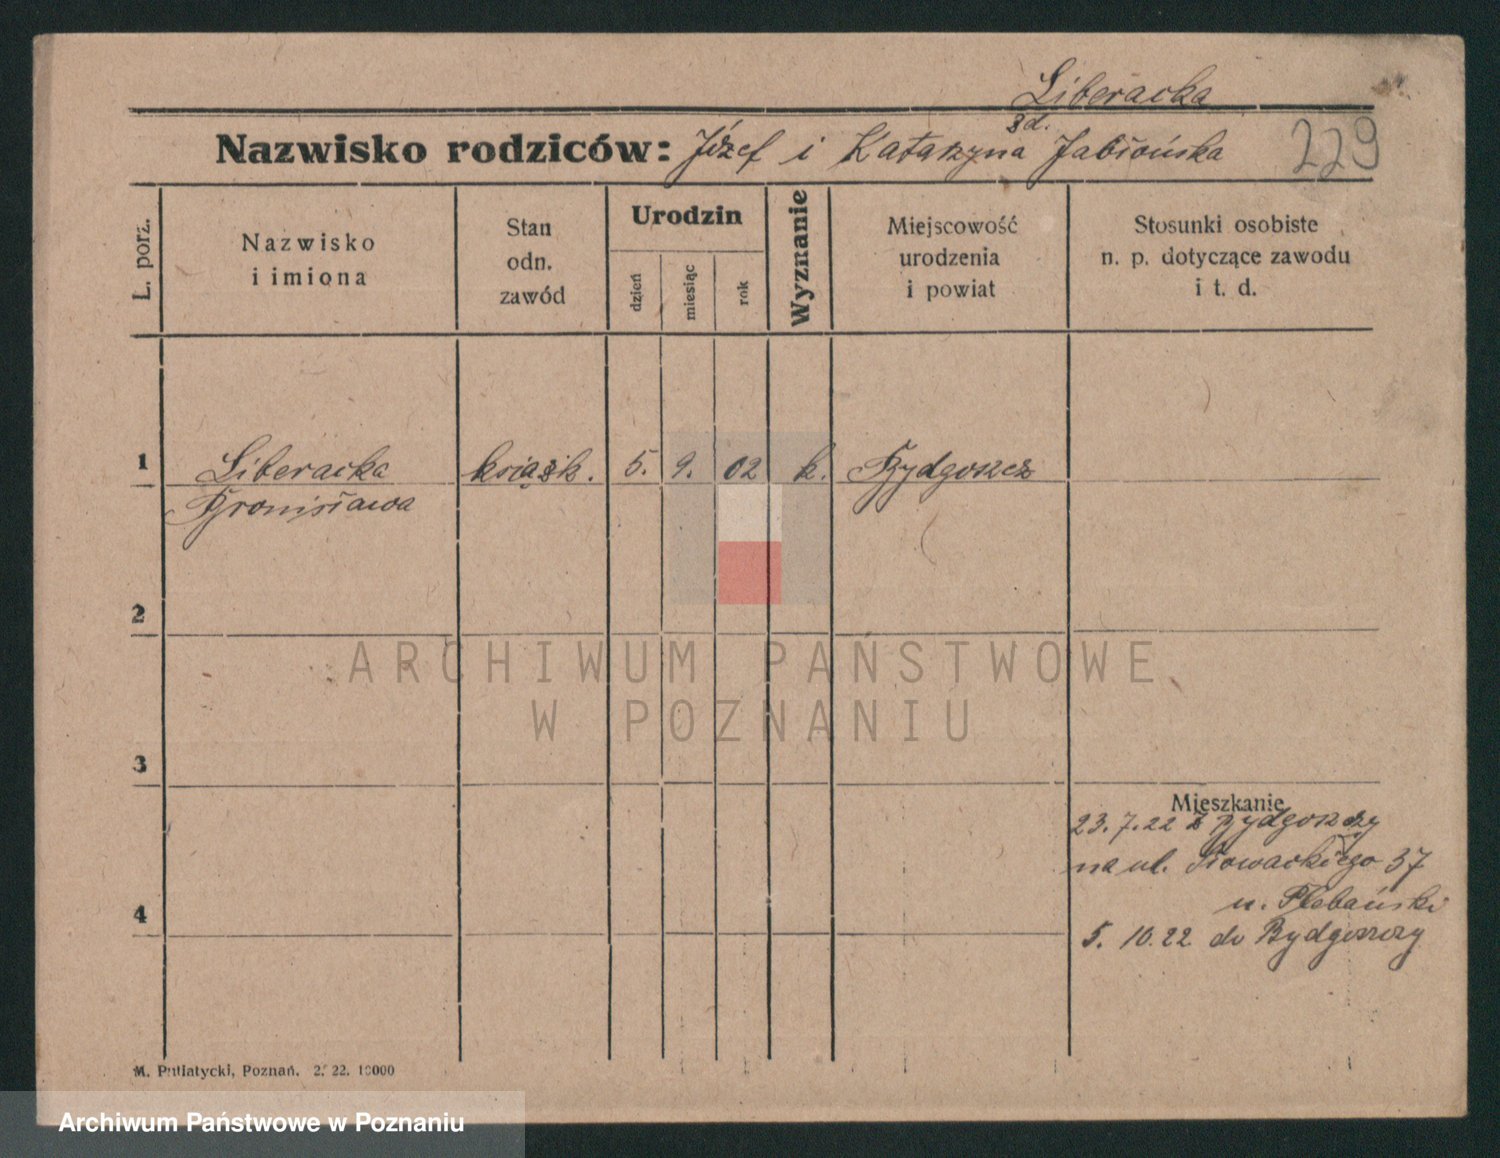 Liberacka
zd.
Nazwisko rodziców: Józef i Katarzyna Jabłońska 229
L. porz.
Nazwisko
i imiona
Stan
odn.
zawód
Urodzin
dzień
miesiąc
rok
Wyznanie
Miejscowość
urodzenia
i powiat
Stosunki osobiste
n. p. dotyczące zawodu
i t. d.
1 Liberacka książk. 5. 9. 02 k. Bydgoszcz
Bronisława
2
ARCHIWUM PAŃSTWOWE
W POZNANIU
3
Mieszkanie
23. 7. 22 z Bydgoszczy
na ul. Słowackiego 37
u. Plebański
4
5. 10. 22 do Bydgoszczy
M. Putiatycki, Poznań. 2. 22. 10000
Archiwum Państwowe w Poznaniu